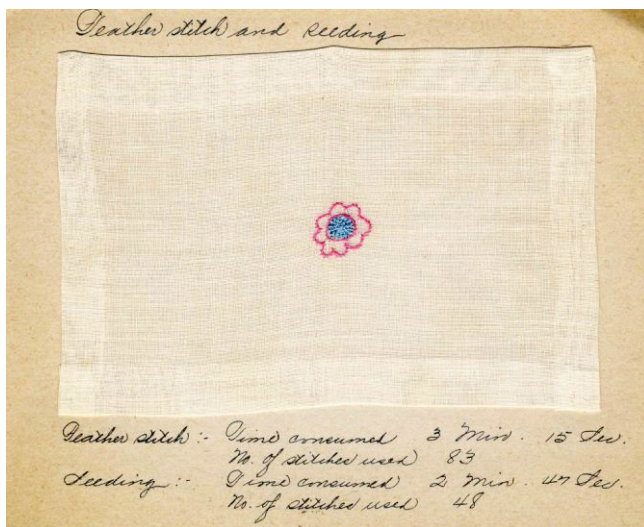 Feather stitch and seeding
Feather stitch :- Time consumed 3 Min. 15 Sec.
No. of stitches used 83
Seeding :- Time consumed 2 Min. 47 Sec.
No. of stitches used 48